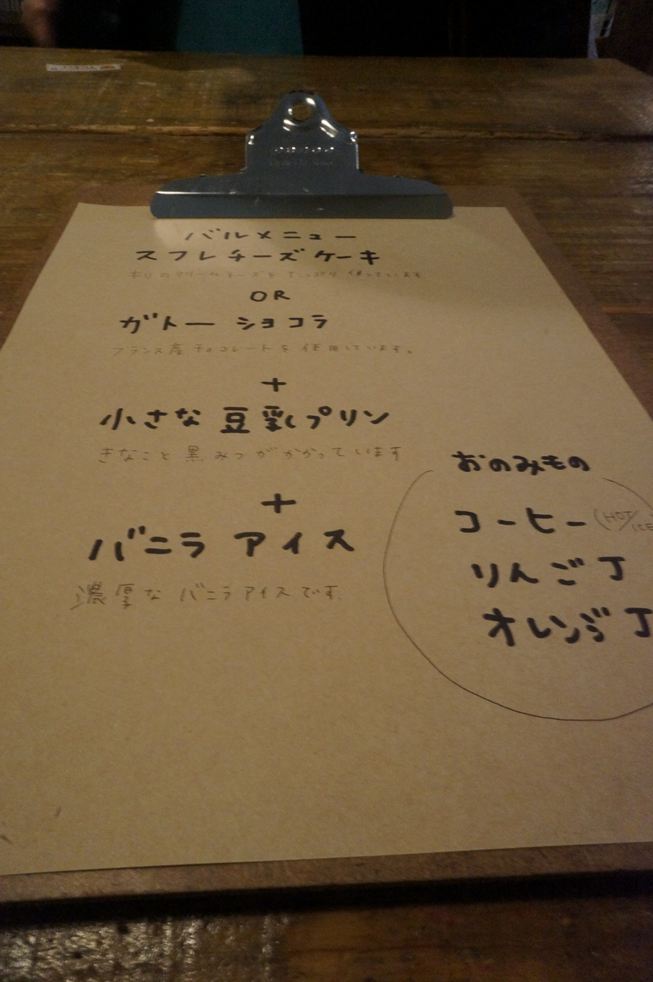 バルメニュー
スフレチーズケーキ
キリのクリームチーズをたっぷり使っています
OR
ガトー ショコラ
フランス産チョコレートを使用しています。
+
小さな豆乳プリン
きなこと黒みつがかかっています
+
バニラ アイス
濃厚なバニラアイスです
おのみもの
コーヒー(HOT/ICE
りんごJ
オレンジJ